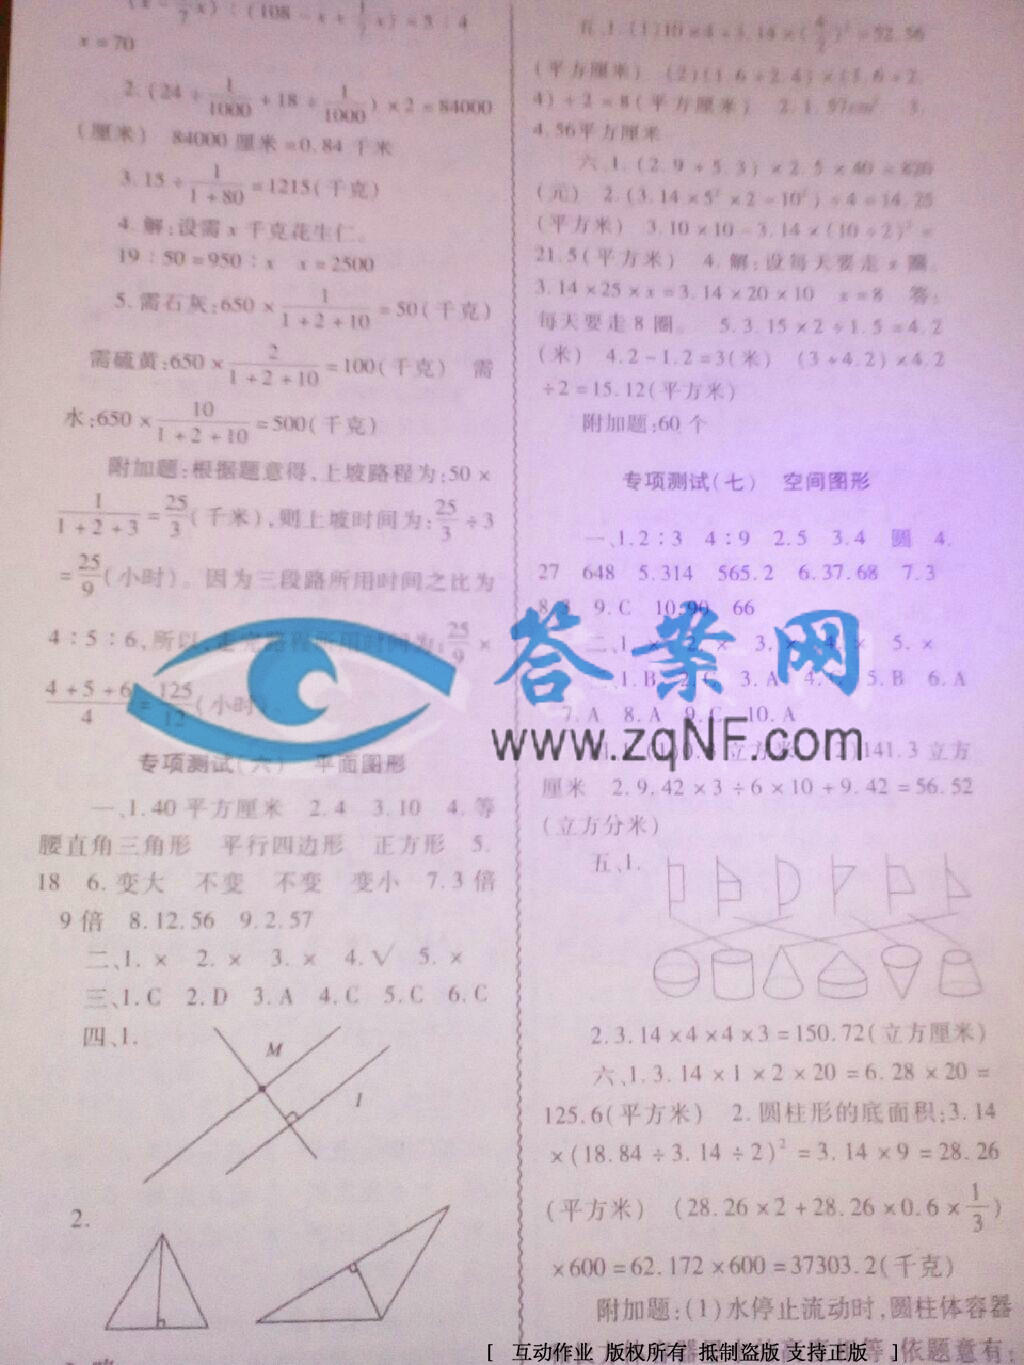 x=70
2.(24÷1/1000+18÷1/1000)×2=84000
(厘米) 84000厘米=0.84千米
3.15÷1/(1+80)=1215(千克)
4.解:设需x千克花生仁。
19:50=950:x x=2500
5.需石灰:650×1/(1+2+10)=50(千克)
需硫黄:650×2/(1+2+10)=100(千克) 需
水:650×10/(1+2+10)=500(千克)
附加题:根据题意得,上坡路程为:50×
1/(1+2+3)=25/3(千米),则上坡时间为:25/3÷3
=25/9(小时)。因为三段路所用时间之比为
4:5:6,所以,走完路程所用时间为:25/9×
(4+5+6)/4=125/12(小时)。
专项测试(六) 平面图形
一、1.40平方厘米 2.4 3.10 4.等
腰直角三角形 平行四边形 正方形 5.
18 6.变大 不变 不变 变小 7.3倍
9倍 8.12.56 9.2.57
二、1.× 2.× 3.× 4.√ 5.×
三、1.C 2.D 3.A 4.C 5.C 6.C
四、1.
M
l
2.
五、1.(1)10×4+3.14×(4/2)²=52.56
(平方厘米) (2)(1.6+2.4)×(1.6+2.
4)÷2=8(平方厘米) 2.1.97cm² 3.
4.56平方厘米
六、1.(2.9+5.3)×2.5×40=820
(元) 2.(3.14×5²×2-10²)÷4=14.25
(平方米) 3.10×10-3.14×(10÷2)²=
21.5(平方米) 4.解:设每天要走x圈。
3.14×25×x=3.14×20×10 x=8 答:
每天要走8圈。 5.3.15×2÷1.5=4.2
(米) 4.2-1.2=3(米) (3+4.2)×4.2
÷2=15.12(平方米)
附加题:60个
专项测试(七) 空间图形
一、1.2:3 4:9 2.5 3.4 圆 4.
27 648 5.314 565.2 6.37.68 7.3
9.C 10.90 66
二、1.× 2.× 3.× 4.× 5.×
1.B 2.C 3.A 4.C 5.B 6.A
7.A 8.A 9.C 10.A
立方米 (2)141.3立方
厘米 2.9.42×3÷6×10+9.42=56.52
(立方分米)
五、1.
2.3.14×4×4×3=150.72(立方厘米)
六、1.3.14×1×2×20=6.28×20=
125.6(平方米) 2.圆柱形的底面积:3.14
×(18.84÷3.14÷2)²=3.14×9=28.26
(平方米) (28.26×2+28.26×0.6×1/3)
×600=62.172×600=37303.2(千克)
附加题:(1)水停止流动时,圆柱体容器
依题意有:
答案网
www.zqNF.com
[ 互动作业 版权所有 抵制盗版 支持正版 ]